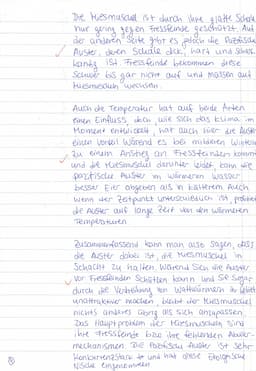 Die Miesmuschel ist durch ihre glatte Schale
nur gering gegen Fressfeinde geschützt. Auf
der anderen Seite gibt es jedoch die Pazifische
Auster, deren Schale dick, hart und scharf-
kantig ist. Fressfeinde bekommen diese
Schwer bis gar nicht auf und müssen auf
Miesmuscheln wechseln.
Auch die Temperatur hat auf beide Arten
einen Einfluss, doch wie sich das Klima im
Moment entwickelt, hat auch hier die Auster
einen Vorteil. Während es bei milderen Wintern
zu einem Anstieg an Fressfeinden kommt
und die Miesmuschel darunter leidet, kann die
pazifische Auster im wärmeren Wasser
besser Eier abgeben als in kälterem. Auch
wenn der Zeitpunkt unterschiedlich ist, profitiert
die Auster auf lange Zeit von den wärmeren
Temperaturen.
Zusammenfassend kann man also sagen, dass
die Auster dabei ist, die Miesmuschel in
Schacht zu halten. Während sich die Auster
vor Fressfeinden schützen kann und sie sogar
durch die Verbreitung von
unattraktiver machen, bleibt der Miesmuschel
nichts anderes übrig als sich anzupassen.
Das Hauptproblem der Miesmuscheln sind
ihre Fressfeinde bzw. ihre fehlenden Abwehr-
mechanismen. Die Pazifische Auster ist sehr
Konkurrenzstark und hat diese Ökologische
Nische eingenommen